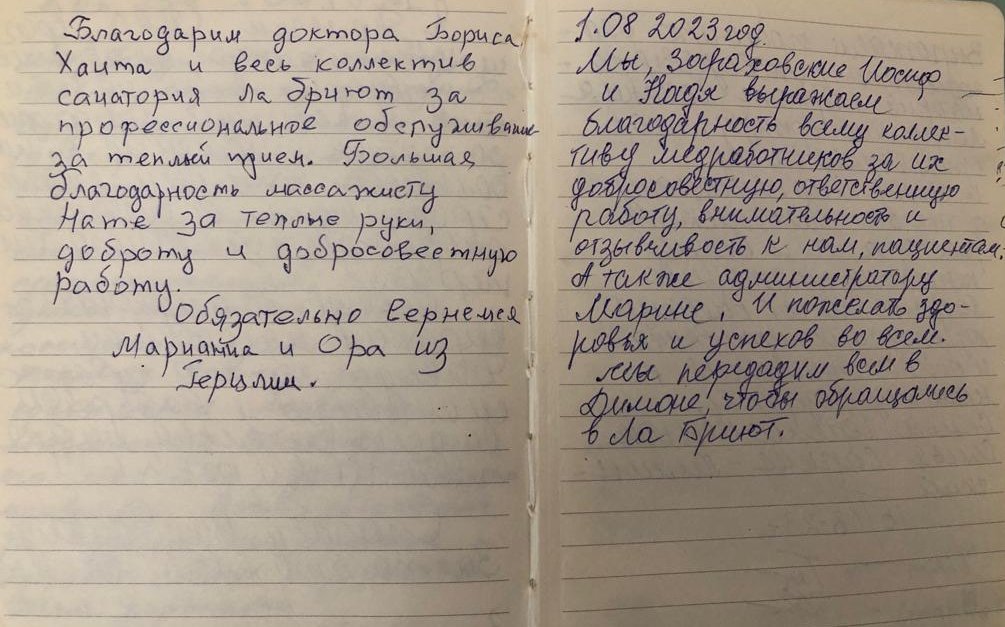 Благодарим доктора Бориса
Хаита и весь коллектив
санатория Ла бриют за
профессиональное обслуживание
за теплый прием. Большая
благодарность массажисту
Нате за теплые руки,
доброту и добросовестную
работу.
Обязательно вернемся
Марианна и Ора из
Герцлии.
1.08 2023 год.
Мы, Зараховские Иосиф
и Надя выражаем
благодарность всему коллек-
тиву медработников за их
добросовестную, ответственную
работу, внимательность и
отзывчивость к нам, пациентам.
А также администратору
Марине. И пожелать здо-
ровья и успехов во всем.
Мы передадим всем в
Димоне, чтобы обращались
в Ла Бриют.